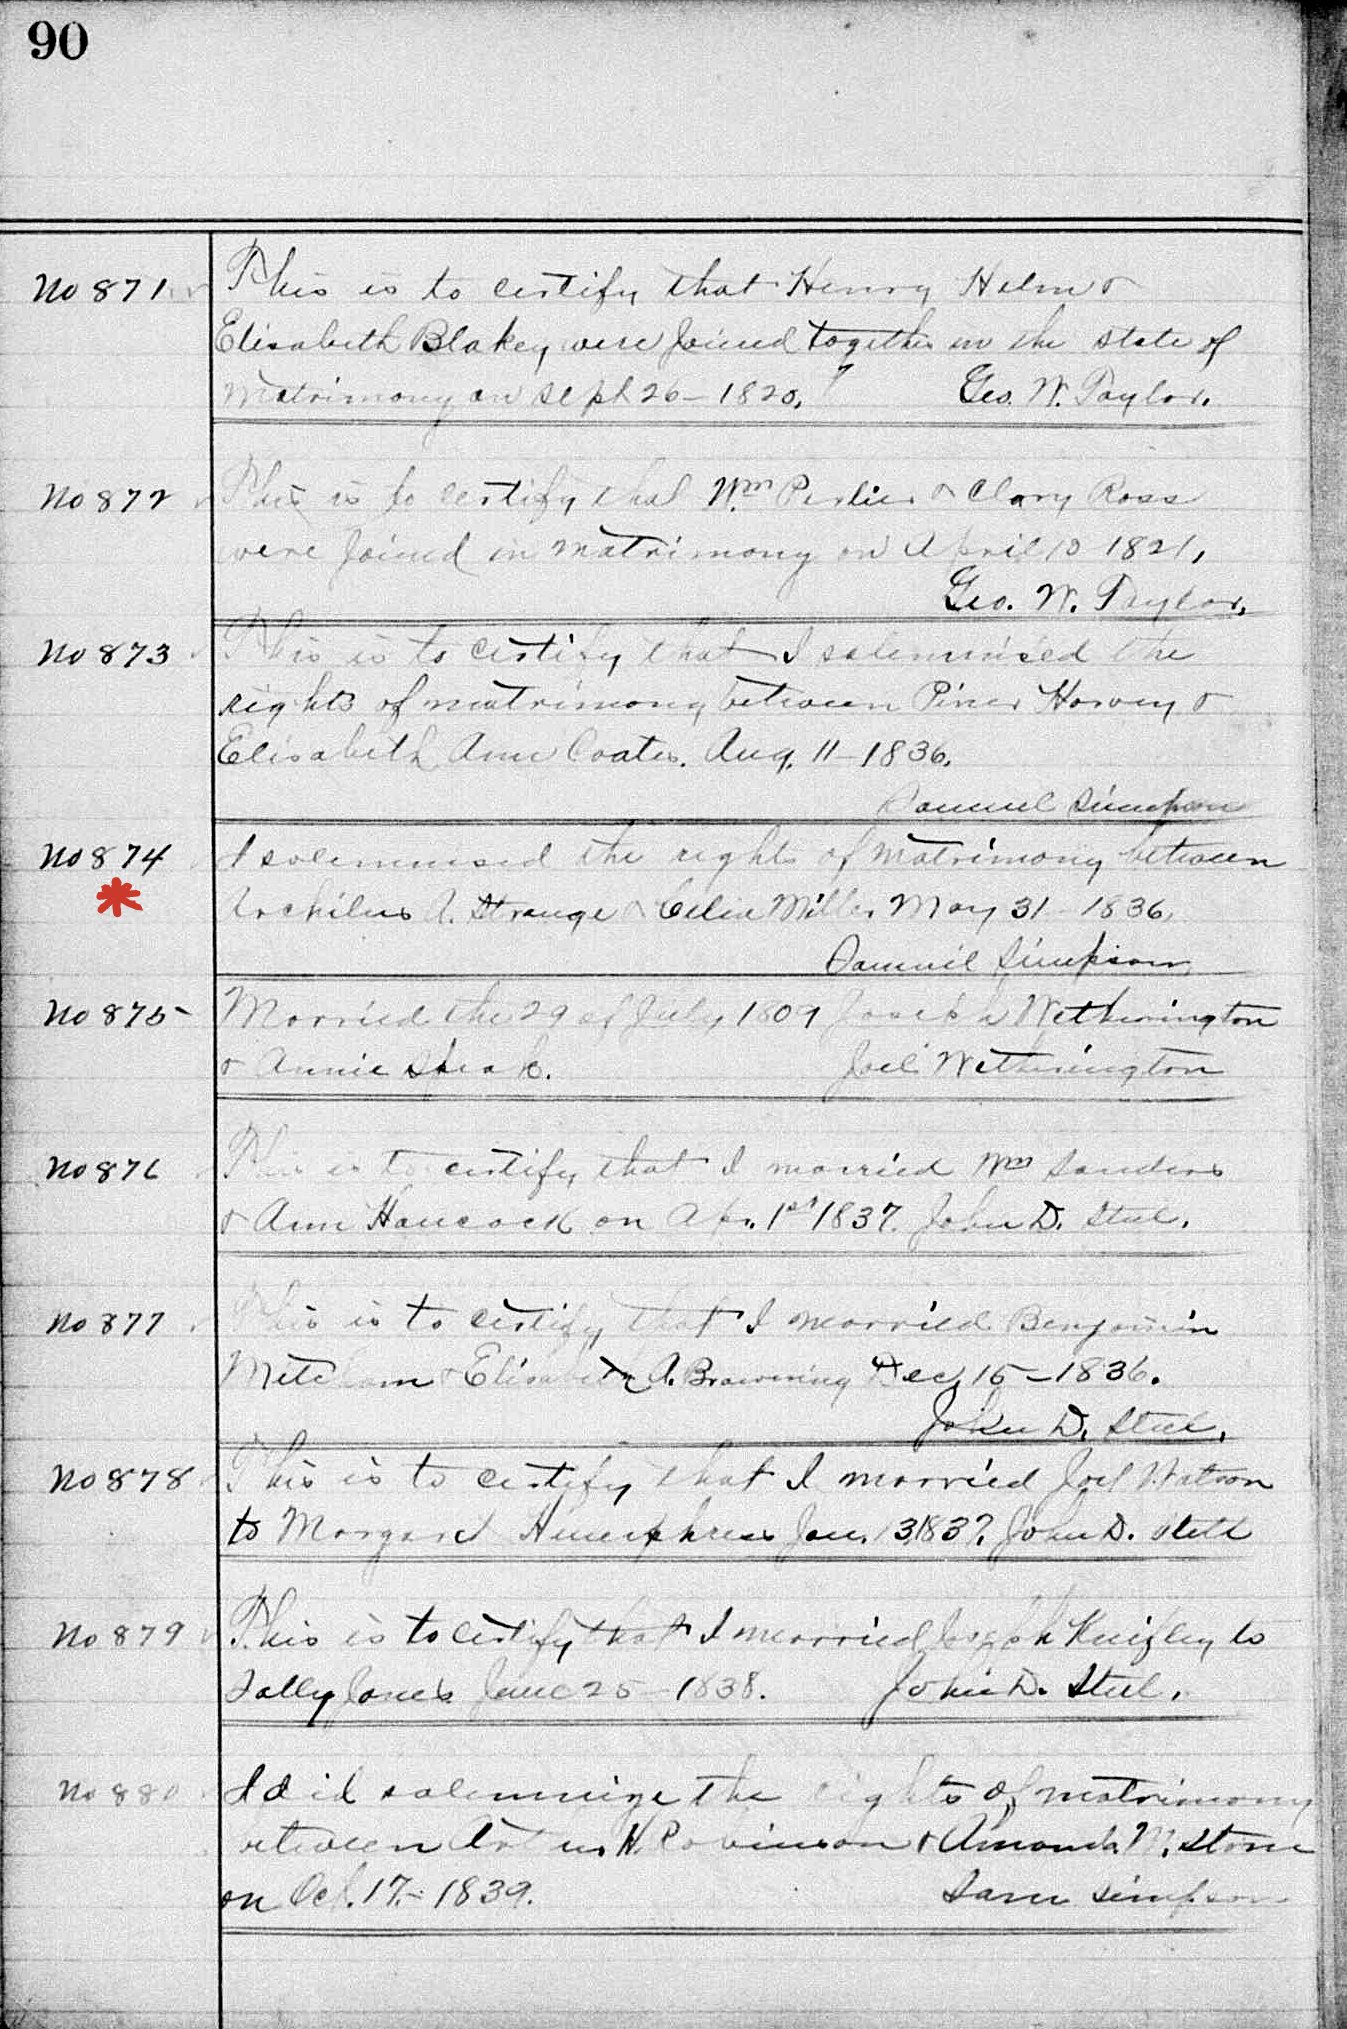 90
No 871 This is to certify that Henry Helm &
Elisabeth Blakey were joined together in the state of
Matrimony on Sept 26 - 1820. Geo. W. Taylor.
No 872 This is to certify that Wm & Clary Ross
were joined in matrimony on April 10 1821,
Geo. W. Taylor,
No 873 This is to certify that I solemnised the
rights of matrimony between Piner Harvey &
Elisabeth Ann Coates. Aug. 11 - 1836.
Samuel Simpson
No 874 I solemnised the rights of matrimony between
A. Strange & Celia Miller May 31 - 1836
Samuel Simpson
No 875 Married the 29 of July 1809 Joseph Wetherington
& Annie Joel Wetherington
No 876 This is to certify that I married Wm Sanders
& Ann Hancock on Apr. 1st 1837. John D. Steel.
No 877 This is to certify that I married Benjamin
Mitcham & Elisabeth A. Browning Dec 15 - 1836.
John D. Steel.
No 878 This is to certify that I married Joel Watson
to Margaret Humphress Jan. 1837. John D. Steel
No 879 This is to certify that I married Joseph Knifley to
Sally Jones June 25 - 1838. John D. Steel.
No 880 I did solemnize the rights of matrimony
between H. Robinson & Amanda M. Stone
on Oct. 17. - 1839. Sam Simpson